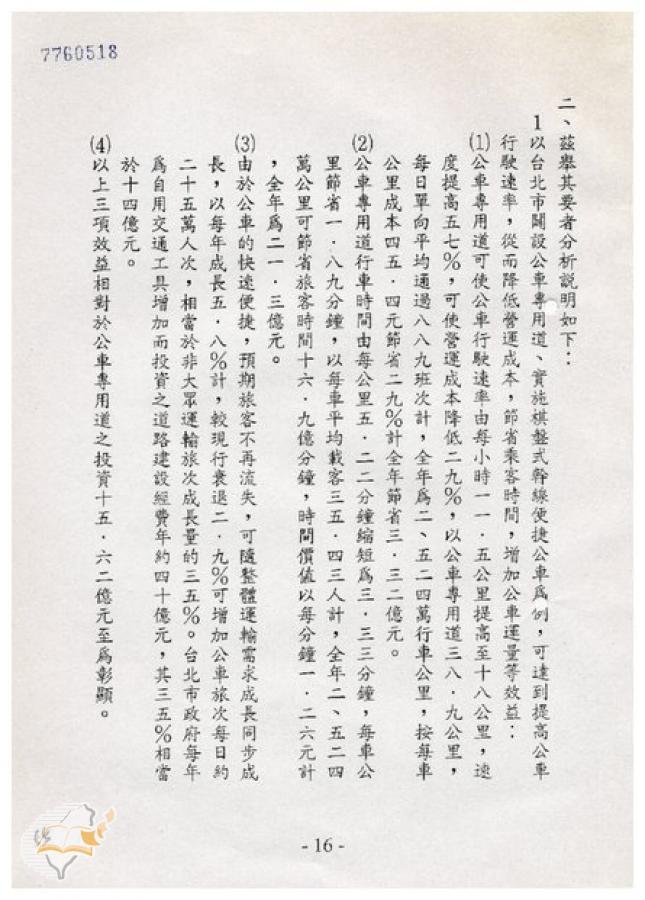 7760518
二、茲舉其要者分析說明如下：
1以台北市開設公車專用道、實施棋盤式幹線便捷公車為例，可達到提高公車
行駛速率，從而降低營運成本，節省乘客時間，增加公車運量等效益：
⑴公車專用道可使公車行駛速率由每小時一一．五公里提高至十八公里，速
度提高五七％，可使營運成本降低二九％，以公車專用道三八．九公里，
每日單向平均通過八八九班次計，全年為二、五二四萬行車公里，按每車
公里成本四五．四元節省二九％計全年節省三．三二億元。
⑵公車專用道行車時間由每公里五．二二分鐘縮短為三．三三分鐘，每車公
里節省一．八九分鐘，以每車平均載客三五．四三人計，全年二、五二四
萬公里可節省旅客時間十六．九億分鐘，時間價值以每分鐘一．二六元計
，全年為二一．三億元。
⑶由於公車的快速便捷，預期旅客不再流失，可隨整體運輸需求成長同步成
長，以每年成長五．八％計，較現行衰退二．九％可增加公車旅次每日約
二十五萬人次，相當於非大眾運輸旅次成長量的三五％。台北市政府每年
為自用交通工具增加而投資之道路建設經費年約四十億元，其三五％相當
於十四億元。
⑷以上三項效益相對於公車專用道之投資十五．六二億元至為彰顯。
- 16 -